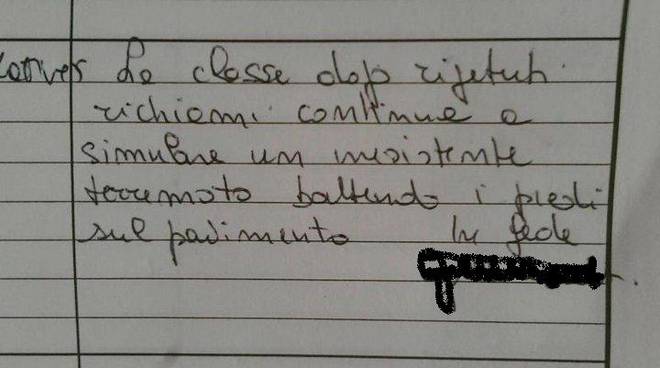 La classe dopo ripetuti
richiami continua a
simulare un inesistente
terremoto battendo i piedi
sul pavimento In fede